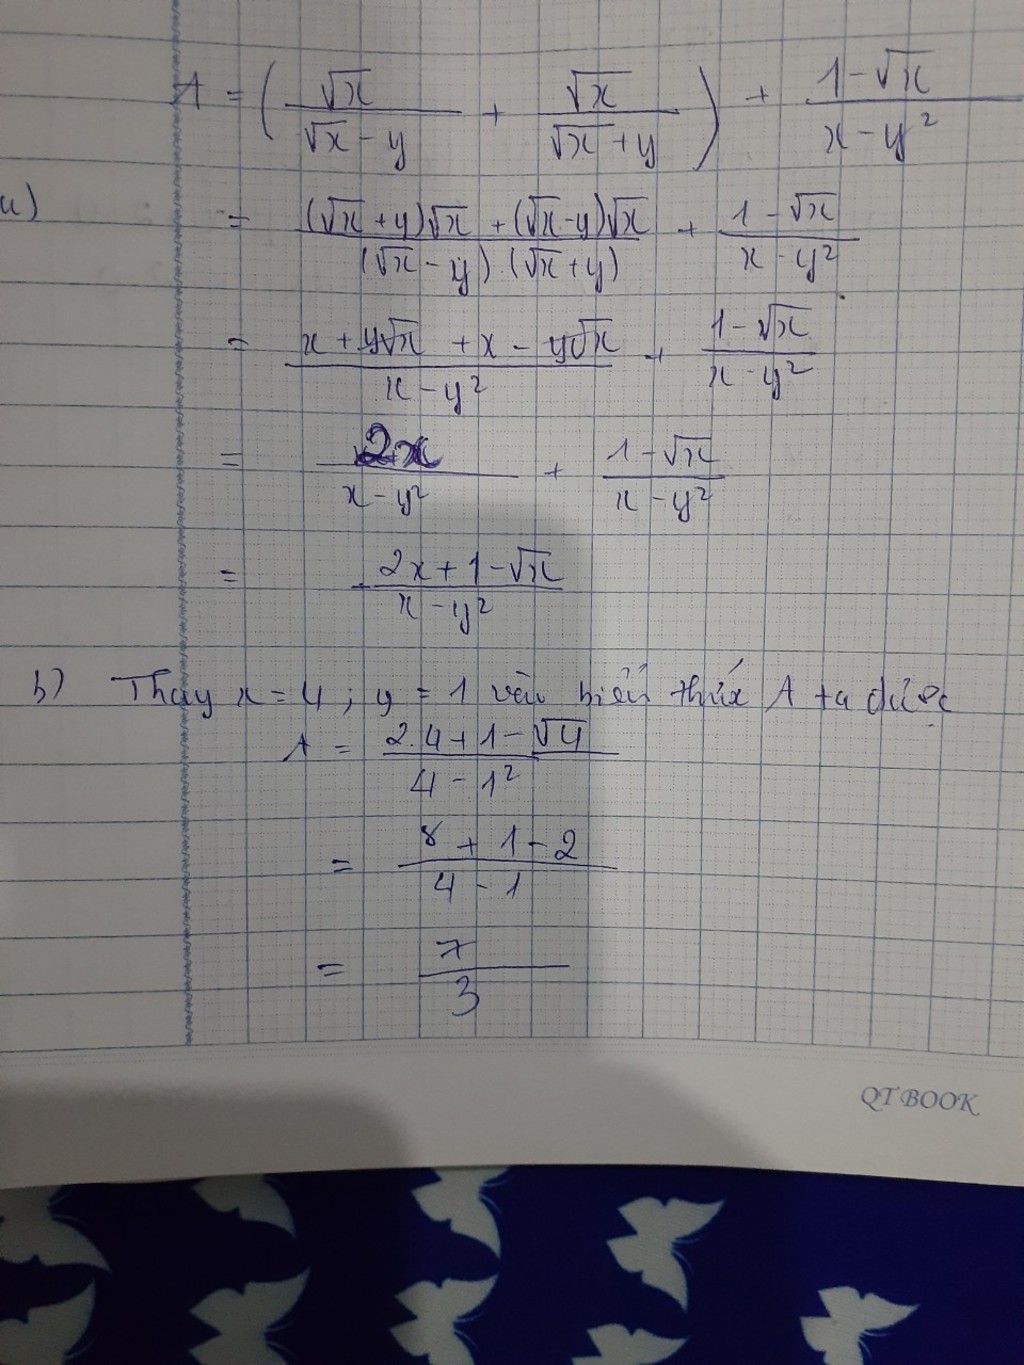 A = ( √x / (√x - y) + √x / (√x + y) ) + (1 - √x) / (x - y²)
a) = ((√x + y)√x + (√x - y)√x) / ((√x - y).(√x + y)) + (1 - √x) / (x - y²)
= (x + y√x + x - y√x) / (x - y²) + (1 - √x) / (x - y²)
= 2x / (x - y²) + (1 - √x) / (x - y²)
= (2x + 1 - √x) / (x - y²)
b) Thay x = 4 ; y = 1 vào biểu thức A ta được
A = (2.4 + 1 - √4) / (4 - 1²)
= (8 + 1 - 2) / (4 - 1)
= 7 / 3
QT BOOK